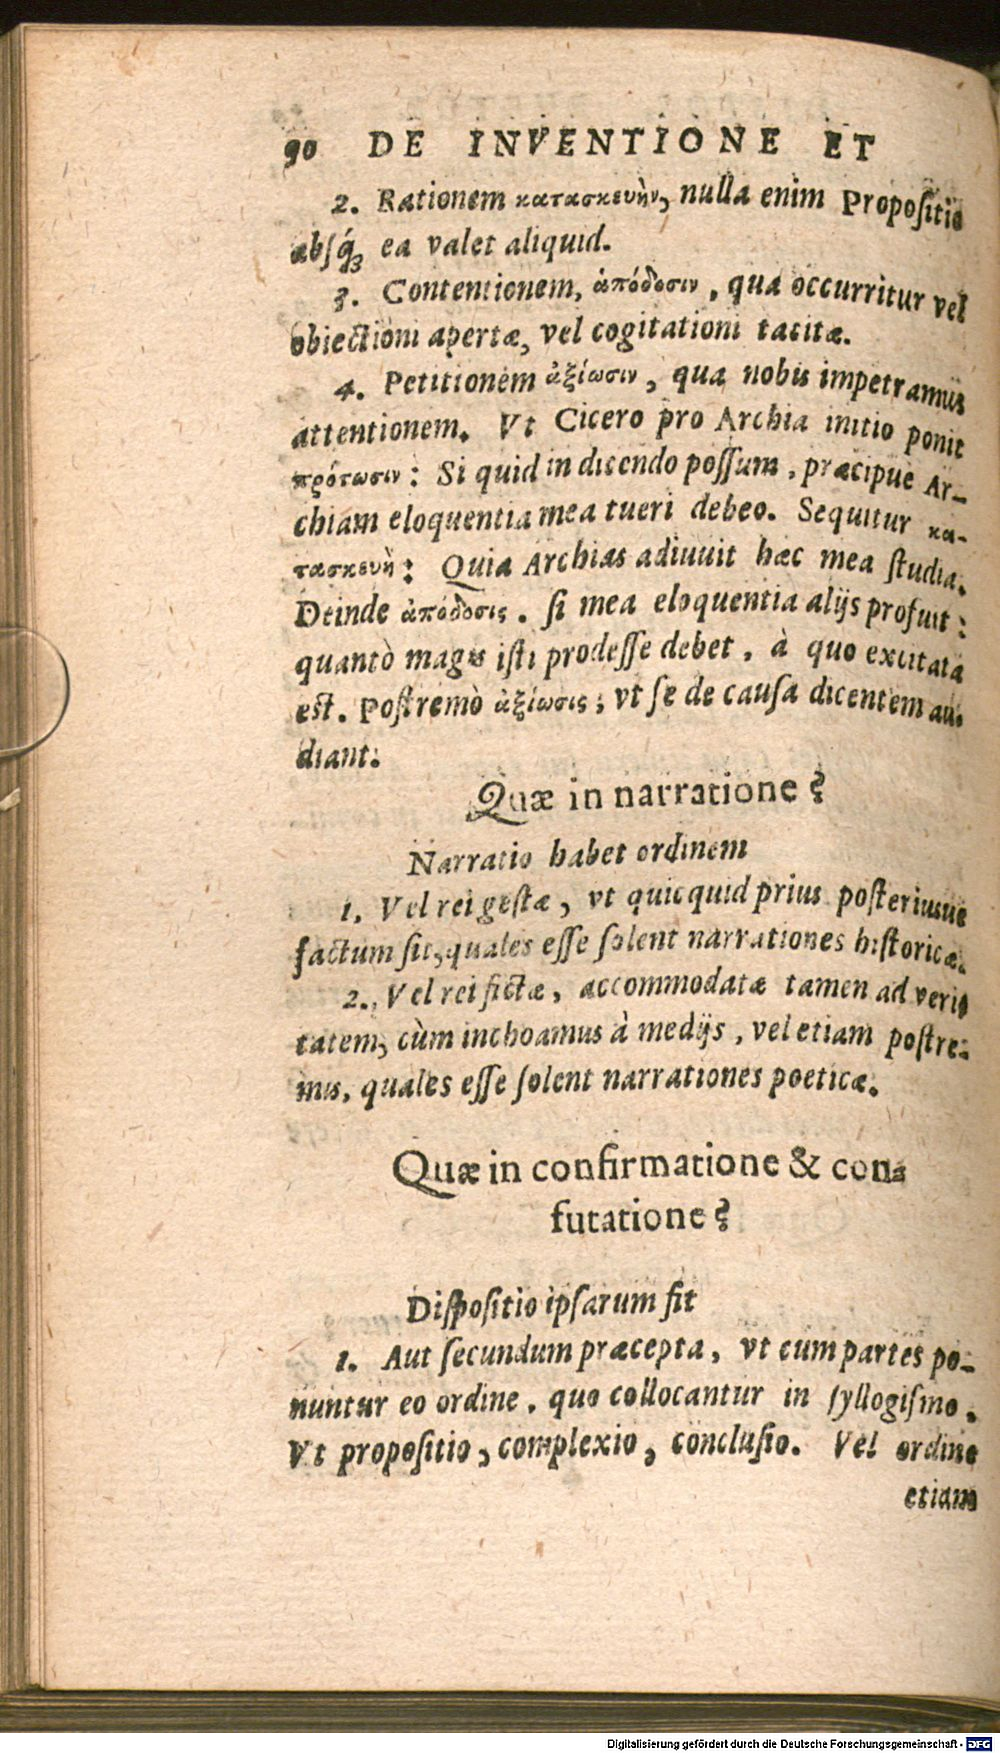 90 DE INVENTIONE ET
2. Rationem κατασκευὴν, nulla enim Propoſitio
abſq́ꝫ ea valet aliquid.
3. Contentionem, ἀπόδοσιν, qua occurritur vel
obiectioni apertæ, vel cogitationi tacitæ.
4. Petitionem ἀξίωσιν, qua nobis impetramus
attentionem. Vt Cicero pro Archia initio ponit
πρότασιν: Si quid in dicendo poſſum, præcipue Ar-
chiam eloquentia mea tueri debeo. Sequitur κα-
τασκευὴ: Quia Archias adiuuit hæc mea ſtudia.
Deinde ἀπόδοσις. ſi mea eloquentia alijs profuit:
quantò magis iſti prodeſſe debet, à quo excitata
eſt. Poſtremò ἀξίωσις; vt ſe de cauſa dicentem au-
diant.
Quæ in narratione?
Narratio habet ordinem
1. Vel rei geſtæ, vt quicquid prius poſteriusue
factum ſit, quales eſſe ſolent narrationes hiſtoricæ.
2. Vel rei fictæ, accommodatæ tamen ad veri-
tatem, cùm inchoamus à medijs, vel etiam poſtre-
mis, quales eſſe ſolent narrationes poeticæ.
Quæ in confirmatione & con-
futatione?
Diſpoſitio ipſarum fit
1. Aut ſecundum præcepta, vt cum partes po-
nuntur eo ordine, quo collocantur in ſyllogiſmo.
Vt propoſitio, complexio, concluſio. Vel ordine
etiam
Digitalisierung gefördert durch die Deutsche Forschungsgemeinschaft - DFG